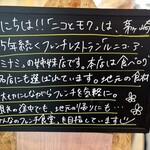 にちは!!「ニコとモク」は、茅ヶ崎
5年続くフレンチレストランル・ニコ・ア・
ミナミ」の姉妹店です。本店は食べログ
名店にも選ばれています。地元の食材
大切にしながらフレンチを気軽に。
観光の途中でも、地元の帰りにも…
みんなのフレンチ食堂を目指しています